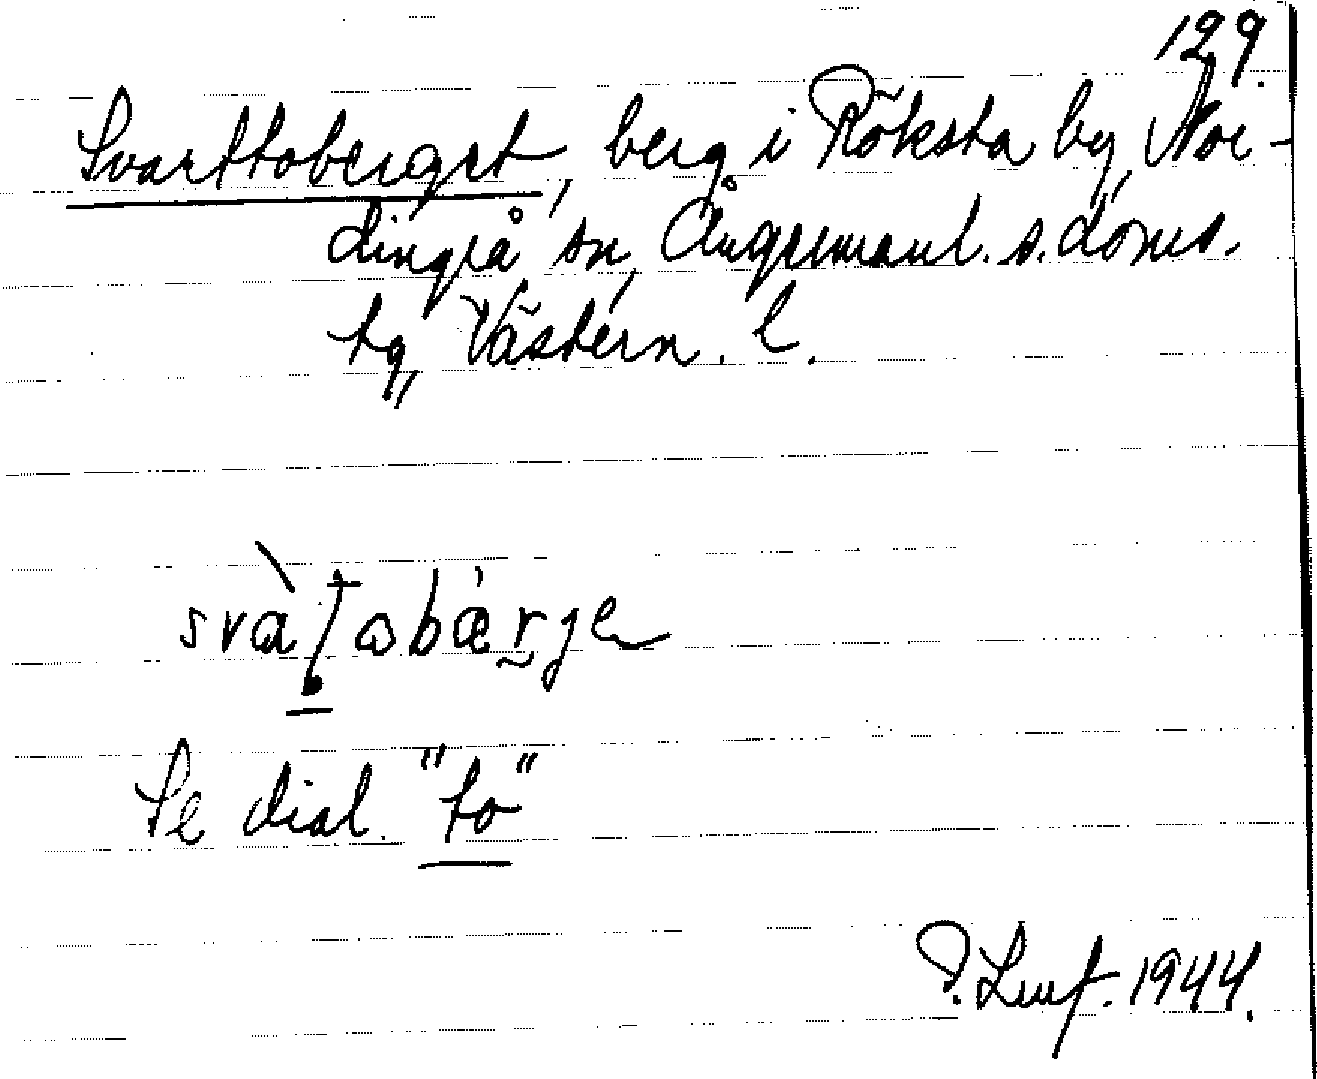 129.
Svarttoberget, berg i Röksta by, Nor-
dingrå sn, Ångermanl. s. doms.
tg, Västern. l.
svàʈobærje
Se dial. "to"
P. Lenf. 1944.